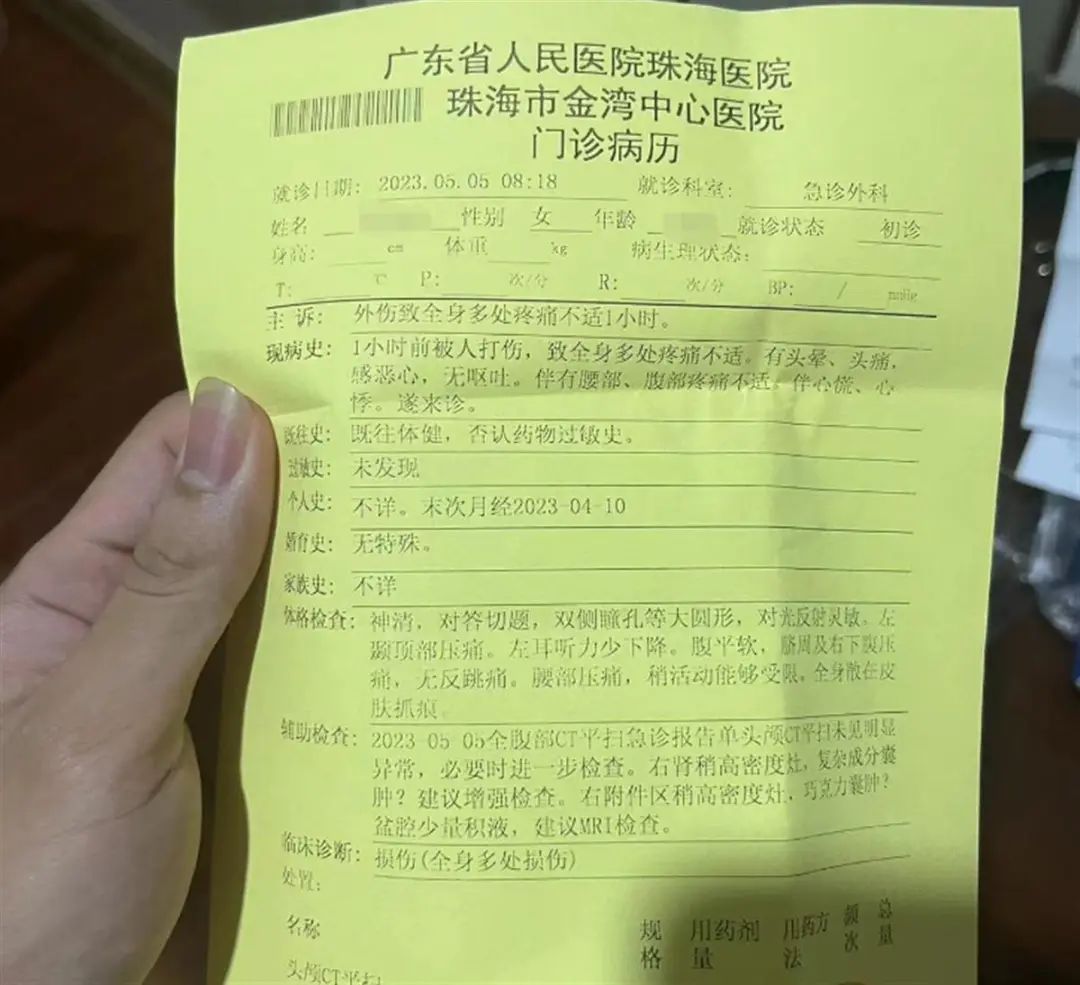 广东省人民医院珠海医院
珠海市金湾中心医院
门诊病历
就诊日期: 2023.05.05 08:18 就诊科室: 急诊外科
姓名 性别 女 年龄 就诊状态 初诊
身高: cm 体重 kg 病生理状态:
T: ℃ P: 次/分 R: 次/分 BP: / mmHg
主 诉: 外伤致全身多处疼痛不适1小时。
现病史: 1小时前被人打伤，致全身多处疼痛不适。有头晕、头痛，
感恶心，无呕吐。伴有腰部、腹部疼痛不适。伴心慌、心
悸。遂来诊。
既往史: 既往体健，否认药物过敏史。
过敏史: 未发现
个人史: 不详。末次月经2023-04-10
婚育史: 无特殊。
家族史: 不详
体格检查: 神清，对答切题，双侧瞳孔等大圆形，对光反射灵敏。左
颞顶部压痛。左耳听力少下降。腹平软，脐周及右下腹压
痛，无反跳痛。腰部压痛，稍活动能够受限。全身散在皮
肤抓痕。
辅助检查: 2023-05-05全腹部CT平扫急诊报告单头颅CT平扫未见明显
异常，必要时进一步检查。右肾稍高密度灶，复杂成分囊
肿？建议增强检查。右附件区稍高密度灶，巧克力囊肿？
盆腔少量积液，建议MRI检查。
临床诊断: 损伤(全身多处损伤)
处置:
名称 规格 用药剂量 用药方法 频次 总量
头颅CT平扫